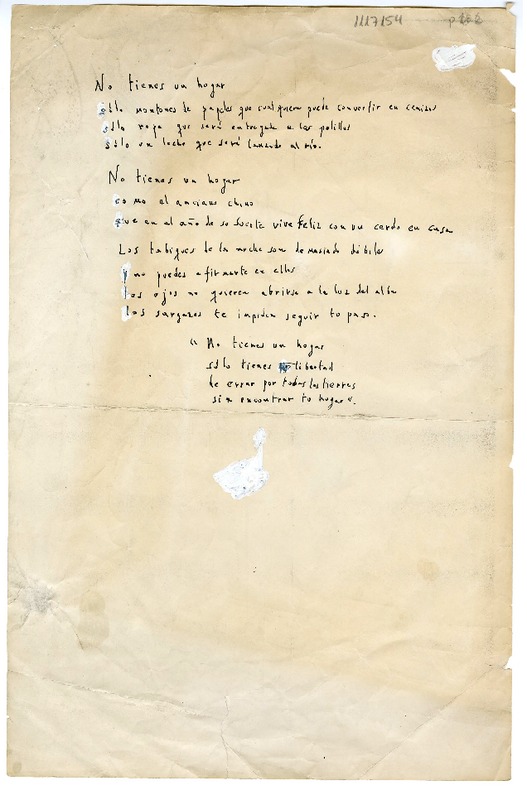 1117154 p 202
No tienes un hogar
sólo montones de papeles que cualquiera puede convertir en cenizas
sólo ropa que será entregada a las polillas
sólo un lecho que será lanzado al río.
No tienes un hogar
como el anciano chino
que en el año de su suerte vive feliz con un cerdo en casa
Los tabiques de la noche son demasiado débiles
y no puedes afirmarte en ellos
los ojos no quieren abrirse a la luz del alba
los sargazos te impiden seguir tu paso.
"No tienes un hogar
sólo tienes libertad
de errar por todas las tierras
sin encontrar tu hogar".